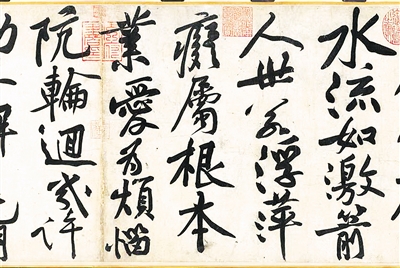 水流如激箭
人世若浮萍
癡屬根本
業愛為煩惱
阬輪迴幾許